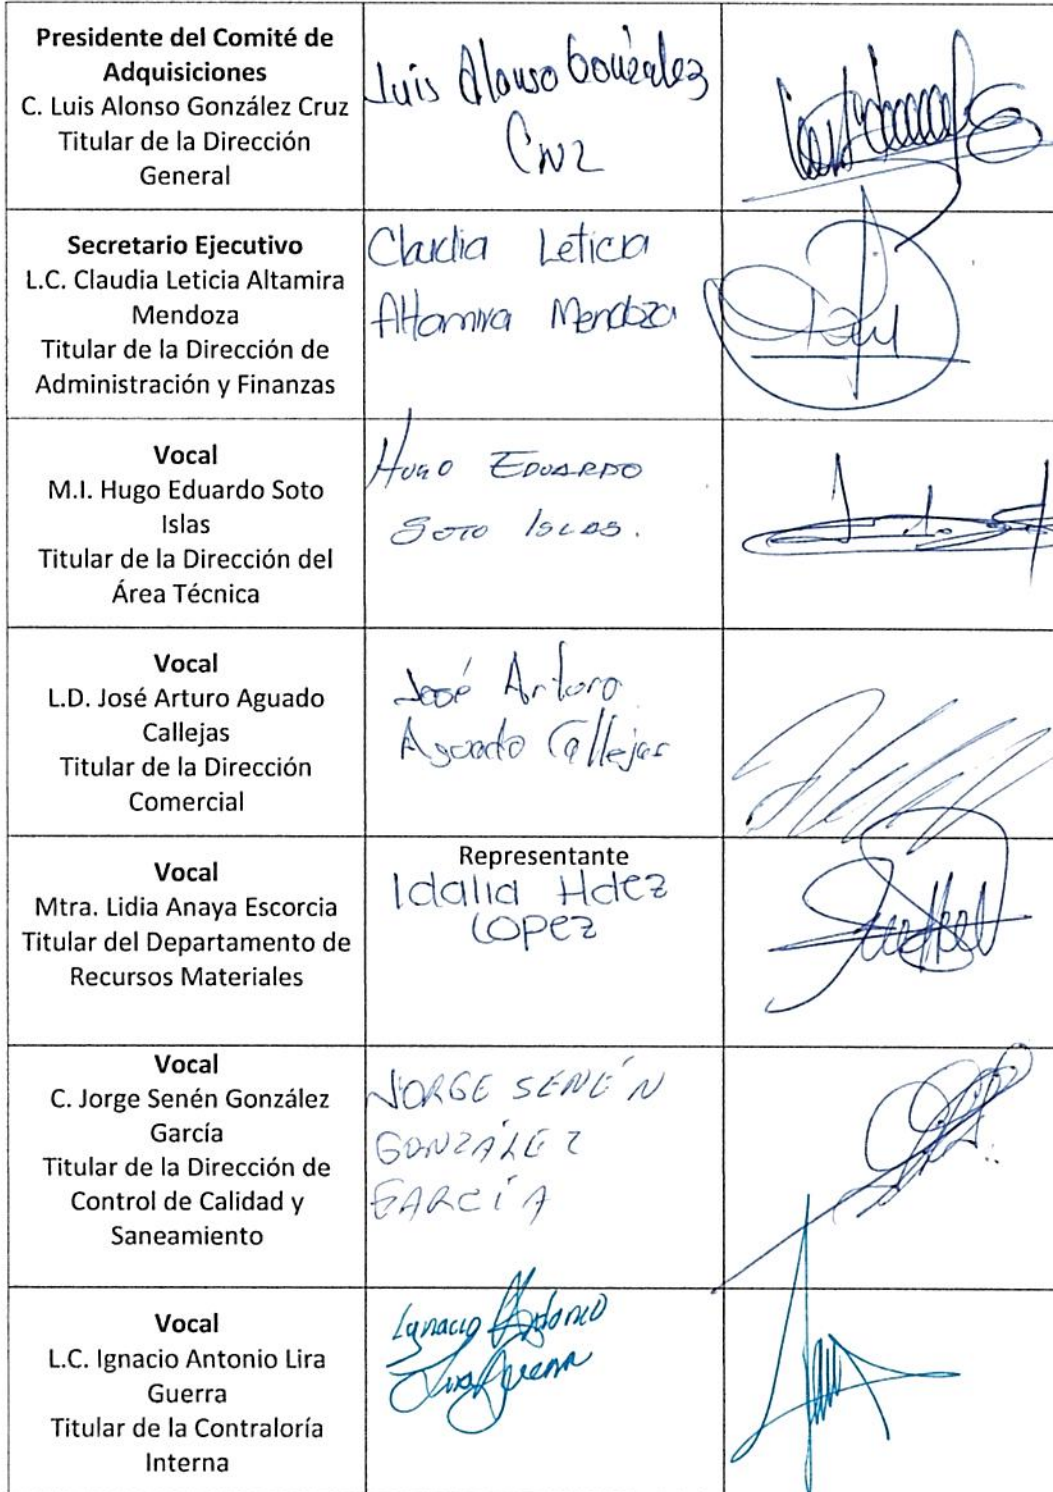 Presidente del Comité de
Adquisiciones
C. Luis Alonso González Cruz
Titular de la Dirección
General
Luis Alonso González
Cruz
Secretario Ejecutivo
L.C. Claudia Leticia Altamira
Mendoza
Titular de la Dirección de
Administración y Finanzas
Claudia Leticia
Altamira Mendoza
Vocal
M.I. Hugo Eduardo Soto
Islas
Titular de la Dirección del
Área Técnica
HUGO EDUARDO
SOTO ISLAS.
Vocal
L.D. José Arturo Aguado
Callejas
Titular de la Dirección
Comercial
José Arturo
Aguado Callejas
Vocal
Mtra. Lidia Anaya Escorcia
Titular del Departamento de
Recursos Materiales
Representante
Idalia Hdez
Lopez
Vocal
C. Jorge Senén González
García
Titular de la Dirección de
Control de Calidad y
Saneamiento
JORGE SENÉN
GONZÁLEZ
GARCÍA
Vocal
L.C. Ignacio Antonio Lira
Guerra
Titular de la Contraloría
Interna
Ignacio Antonio
Lira Guerra